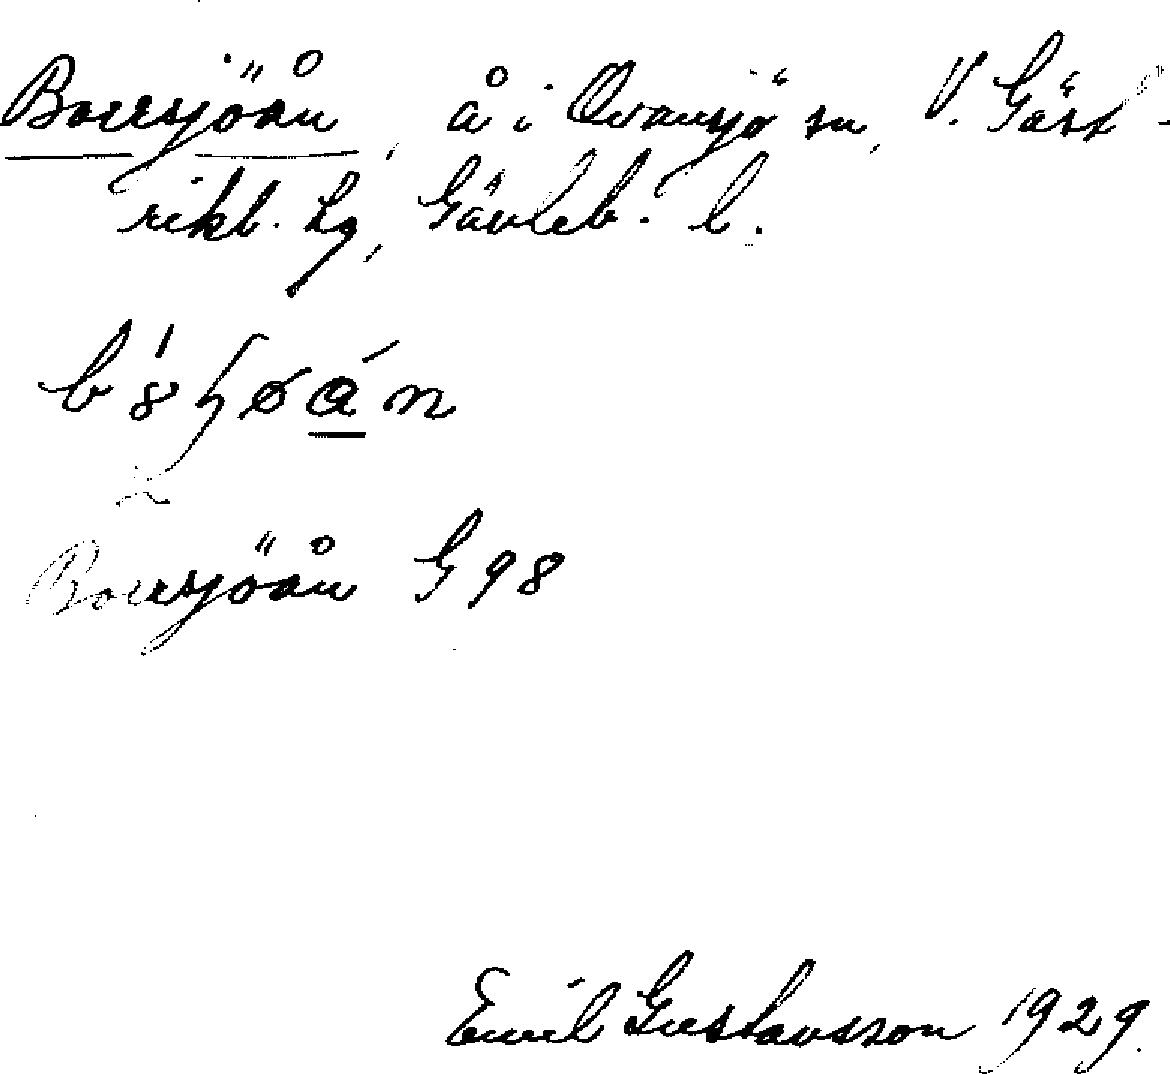 Borrsjöån, å i Ovansjö sn, V. Gäst-
rikl. hg, Gävleb. l.
Borrsjöån G 98
Emil Gustavsson 1929.